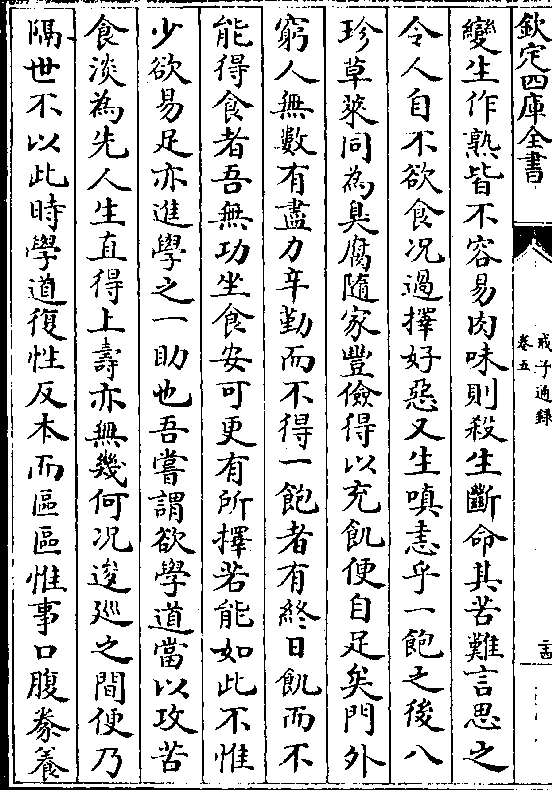 欽定四庫全書
戒子通錄
卷五
變生作熟皆不容易肉味則殺生斷命其苦難言思之
令人自不欲食况過擇好惡又生嗔恚乎一飽之後八
珍草萊同為臭腐隨家豐儉得以充飢便自足矣門外
窮人無數有盡力辛勤而不得一飽者有終日飢而不
能得食者吾無功坐食安可更有所擇若能如此不惟
少欲易足亦進學之一助也吾嘗謂欲學道當以攻苦
食淡為先人生直得上壽亦無幾何况逡廵之間便乃
隔世不以此時學道復性反本而區區惟事口腹豢養